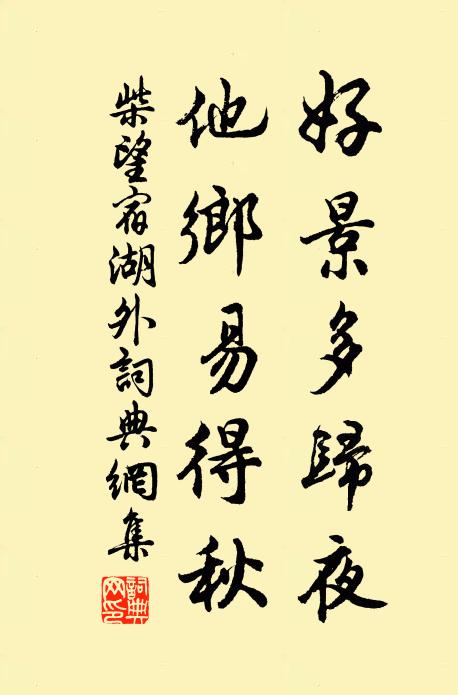 好景多歸夜
他鄉易得秋
柴望宿湖外詞典網集
詞典网印